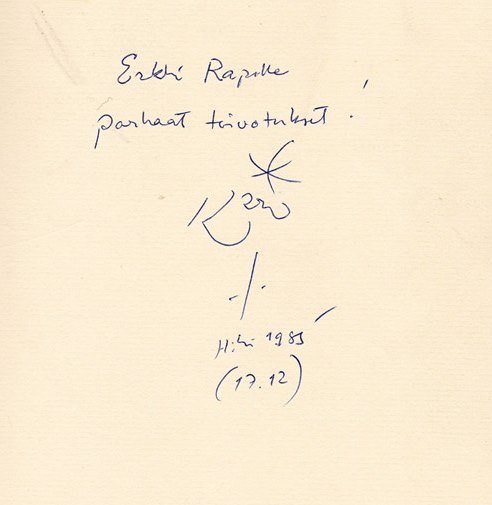 Erkki Rapille
parhaat toivotukset!
H:ki 1985
(17.12)